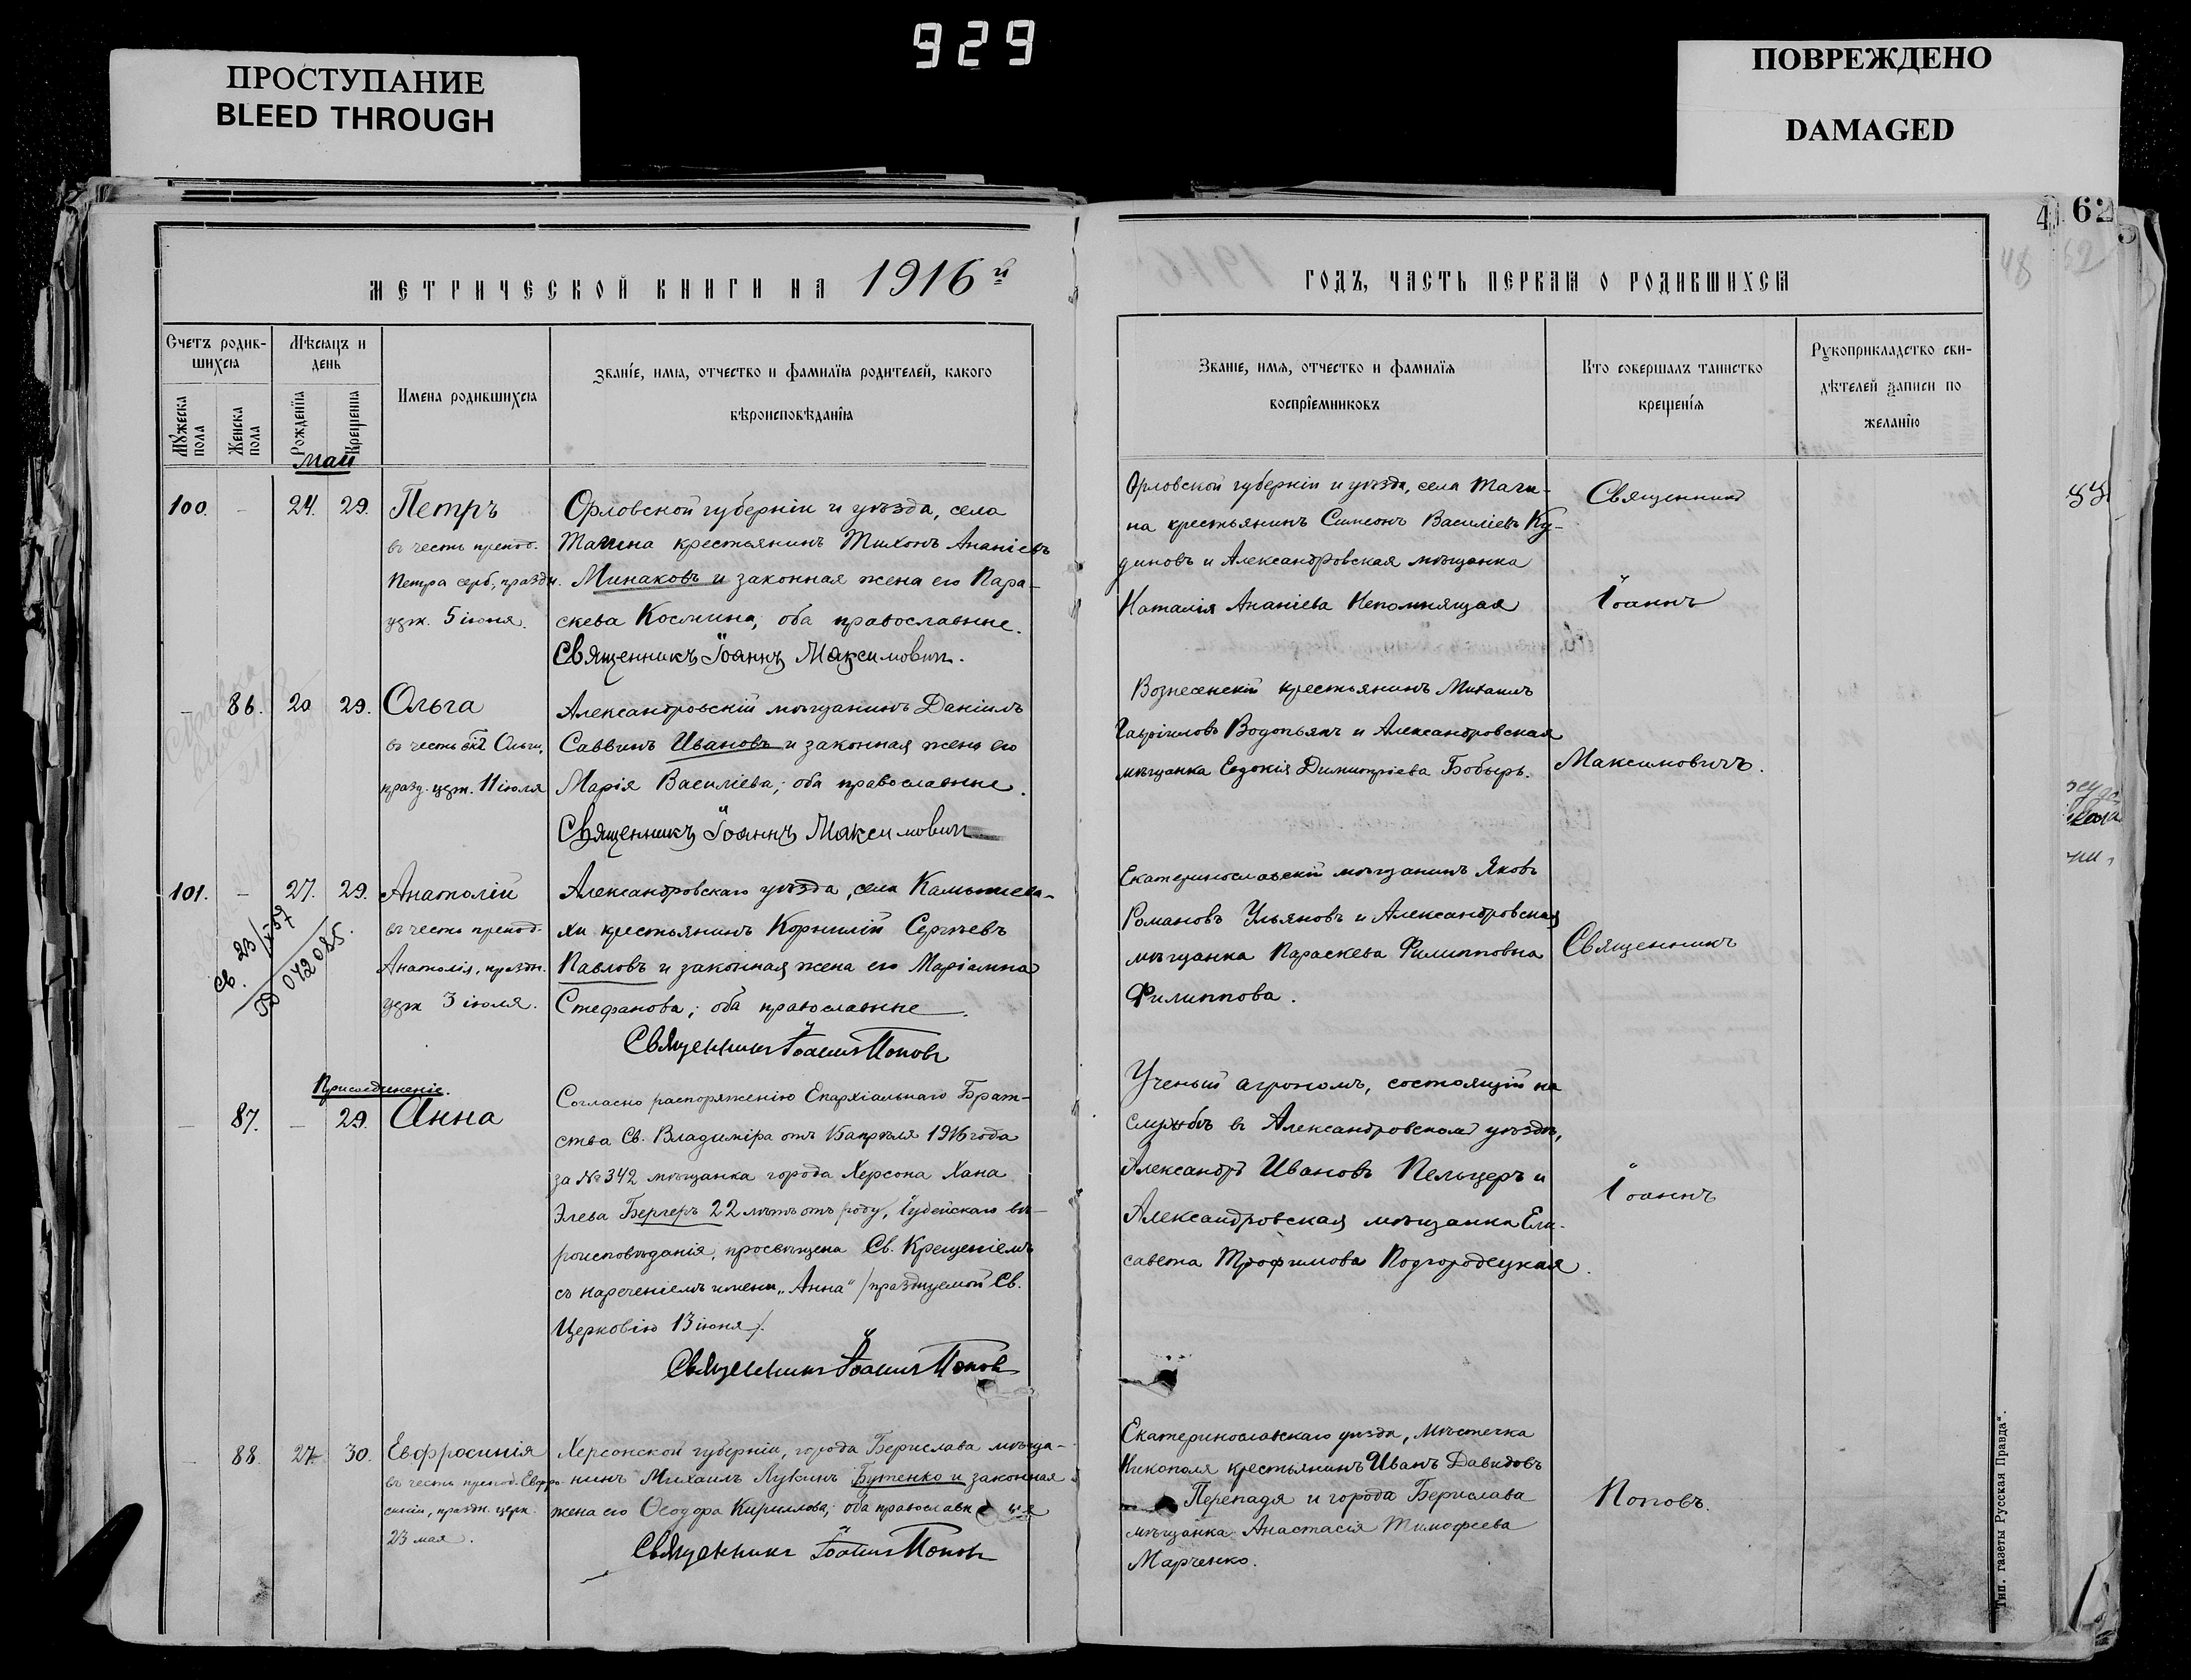 929
ПРОСТУПАНИЕ
BLEED THROUGH
ПОВРЕЖДЕНО
DAMAGED
41
62
МЕТРИЧЕСКОЙ КНИГИ НА 1916й
Счетъ родив-
шихся
Мужеска
пола
Женска
пола
Мѣсяцъ и
день
Рожденїя
Крещенїя
Имена родившихся
Званїе, имя, отчество и фамилїя родителей, какого
вѣроисповѣданїя
Май
100. - 24. 29. Петръ
въ честь препод.
Петра серб., праздн.
цер. 5 іюня.
Орловской губерніи и уѣзда, села
Тагина крестьянинъ Тихонъ Ананіевъ
Минаковъ и законная жена его Пара-
скева Космина; оба православные.
Священникъ Іоаннъ Максимович.
- 86. 20 29. Ольга
въ честь Ольги,
празд. церк. 11 іюля
Александровскій мѣщанинъ Даніилъ
Саввинъ Ивановъ и законная жена его
Марія Василіева; оба православные.
Священникъ Іоаннъ Максимович
101. - 27. 29. Анатолій
въ честь препод.
Анатолія, праздн.
церк 3 іюля.
св. 23/X 37
042085
Александровскаго уѣзда, села Камышева-
хи крестьянинъ Корнилій Сергѣевъ
Павловъ и законная жена его Маріамна
Стефанова; оба православные.
Священникъ Іоаннъ Поповъ
Присоединеніе.
- 87. - 29. Анна
Согласно распоряженію Епархіальнаго Брат-
ства Св. Владиміра отъ апрѣля 1916 года
за № 342 мѣщанка города Херсона Хана
Элева Бергеръ 22 лѣтъ отъ роду, іудейскаго вѣ-
роисповѣданія, просвѣщена Св. Крещеніемъ
съ нареченіемъ имени „Анна" /празднуемой Св.
Церковію 13 іюня/.
Священникъ Іоаннъ Поповъ
- 88. 27. 30. Евфросинія
въ честь препод. Евфро-
синіи, праздн. церк.
23 мая.
Херсонской губерніи, города Берислава мѣща-
нинъ Михаилъ Лукинъ Бутенко и законная
жена его Ѳеодора Кириллова; оба православн
Священникъ Іоаннъ Поповъ
ГОДЪ, ЧАСТЬ ПЕРВАЯ О РОДИВШИХСЯ
Званїе, имя, отчество и фамилїя
воспрїемниковъ
Кто совершалъ таинство
крещенїя
Рукоприкладство сви-
дѣтелей записи по
желанїю
Орловской губерніи и уѣзда, села Таги-
на крестьянинъ Симеонъ Василіевъ Ку-
диновъ и Александровская мѣщанка
Наталія Ананіева Непомнящая
Священникъ
Іоаннъ
Вознесенскій крестьянинъ Михаилъ
Гавріиловъ Водопьянъ и Александровская
мѣщанка Евдокія Димитріева Бобырь.
Максимовичъ.
Екатеринославскій мѣщанинъ Яковъ
Романовъ Ульяновъ и Александровская
мѣщанка Параскева Филипповна
Филиппова.
Священникъ
Ученый агрономъ, состоящій на
службѣ въ Александровскомъ уѣздѣ,
Александръ Ивановъ Пельцеръ и
Александровская мѣщанка Ели-
савета Трофимова Подгородецкая.
Іоаннъ
Екатеринославскаго уѣзда, мѣстечка
Никополя крестьянинъ Иванъ Давидовъ
Перепадя и города Берислава
мѣщанка Анастасія Тимофеева
Марченко.
Поповъ.
Тип. газеты Русская Правда".